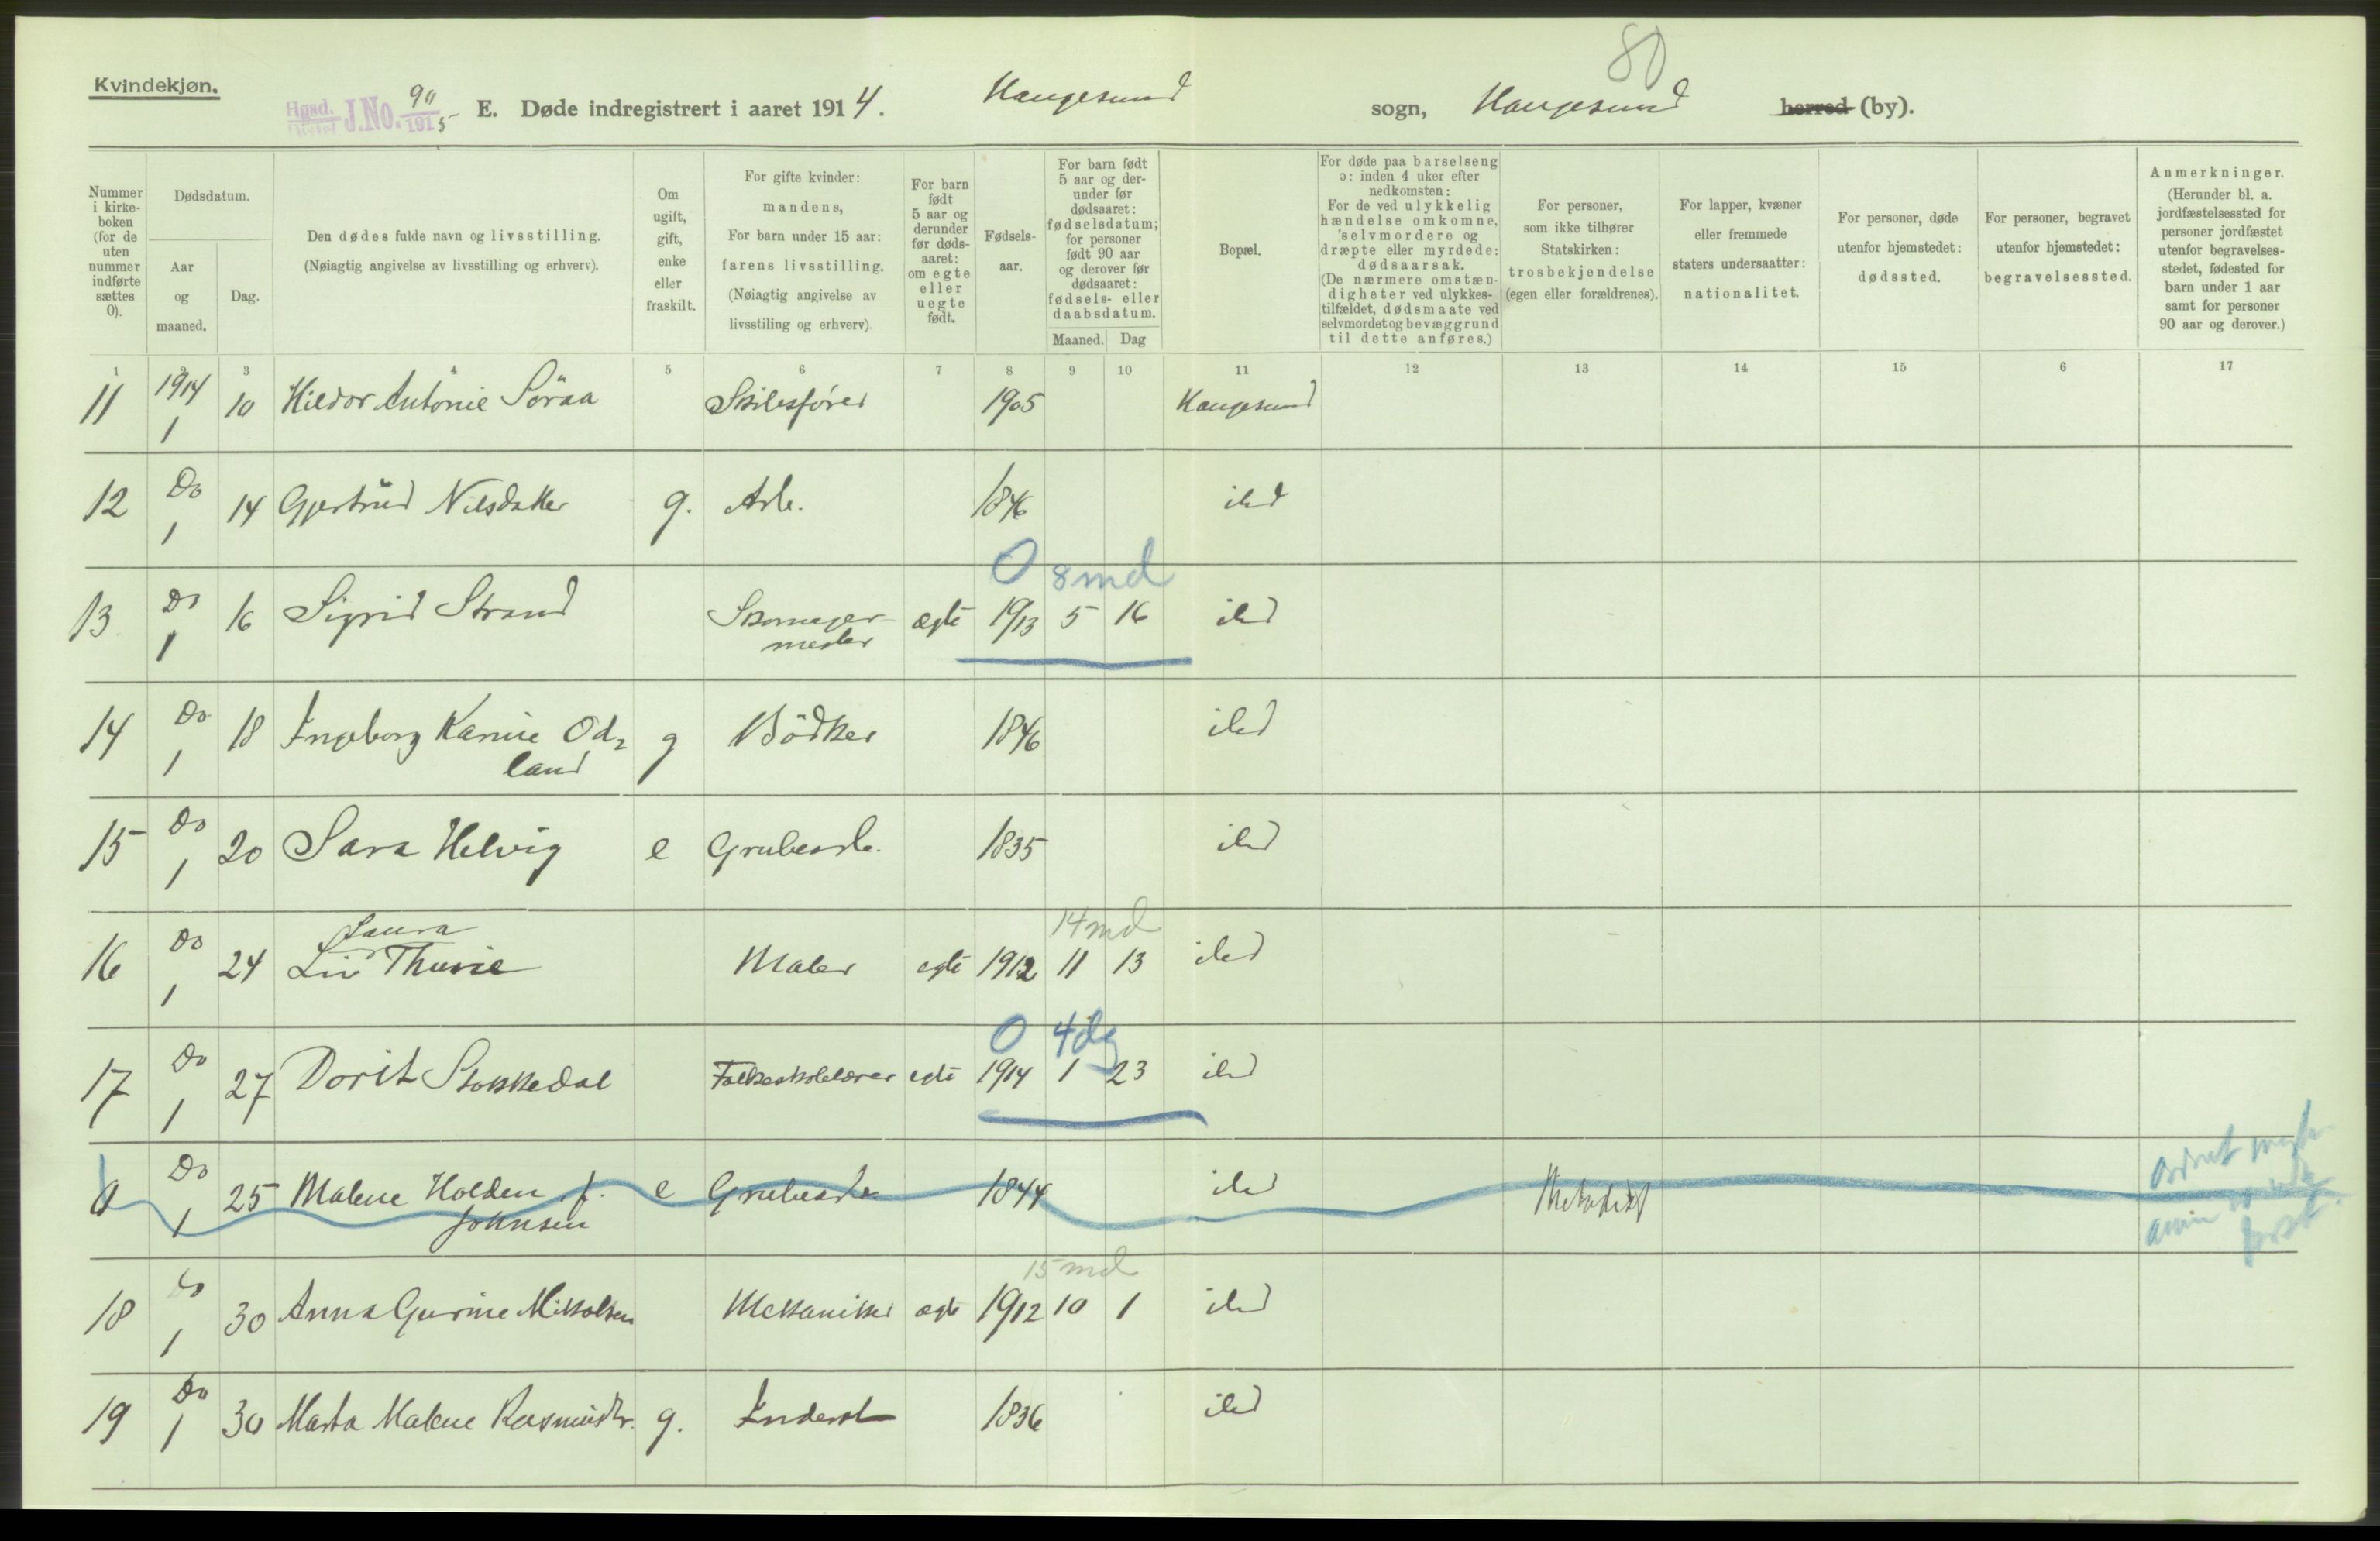 80
Kvindekjøn.
Hgsd. J.No. 90/1915 E. Døde indregistrert i aaret 1914. Haugesund sogn, Haugesund herred (by).
Nummer i kirkeboken (for de uten nummer indførte sættes 0).
Dødsdatum.
Aar og maaned.
Dag.
Den dødes fulde navn og livsstilling.
(Nøiagtig angivelse av livsstilling og erhverv).
Om ugift, gift, enke eller fraskilt.
For gifte kvinder: mandens,
For barn under 15 aar: farens livsstilling.
(Nøiagtig angivelse av livsstiling og erhverv).
For barn født 5 aar og derunder før dødsaaret: om egte eller uegte født.
Fødselsaar.
For barn født 5 aar og derunder før dødsaaret: fødselsdatum; for personer født 90 aar og derover før dødsaaret: fødsels- eller daabsdatum.
Maaned. Dag
Bopæl.
For døde paa barselseng ɔ: inden 4 uker efter nedkomsten:
For de ved ulykkelig hændelse omkomne, selvmordere og dræpte eller myrdede: dødsaarsak.
(De nærmere omstændigheter ved ulykkestilfældet, dødsmaate ved selvmordet og bevæggrund til dette anføres.)
For personer, som ikke tilhører Statskirken: trosbekjendelse (egen eller forældrenes).
For lapper, kvæner eller fremmede staters undersaatter: nationalitet.
For personer, døde utenfor hjemstedet: dødssted.
For personer, begravet utenfor hjemstedet: begravelsessted.
Anmerkninger.
(Herunder bl. a. jordfæstelsessted for personer jordfæstet utenfor begravelsesstedet, fødested for barn under 1 aar samt for personer 90 aar og derover.)
1 2 3 4 5 6 7 8 9 10 11 12 13 14 15 6 17
11 1914 1 10 Hildor Antonie Söraa Skibsfører 1905 Haugesund
12 Do 1 14 Gjertrud Nilsdatter g. Arb. 1846 ibd
0 8 md
13 Do 1 16 Sigrid Strand Skomagermester ægte 1913 5 16 ibd
14 Do 1 18 Ingeborg Karine Odland g Bödker 1846 ibd
15 Do 1 20 Sara Helvig e Grubearb. 1835 ibd
14 md
16 Do 1 24 Liv Laura Thurie Maler egte 1912 11 13 ibd
0 4 dg
17 Do 1 27 Dorit Stokkedal Folkeskolelærer egte 1914 1 23 ibd
0 Do 1 25 Malene Holden f. Johnsen e Grubearb 1844 ibd Metodist
15 md
18 Do 1 30 Anna Gurine Mikkelsen Mekaniker ægte 1912 10 1 ibd
19 Do 1 30 Marta Malene Rasmusdtr. g. Inderst 1836 ibd